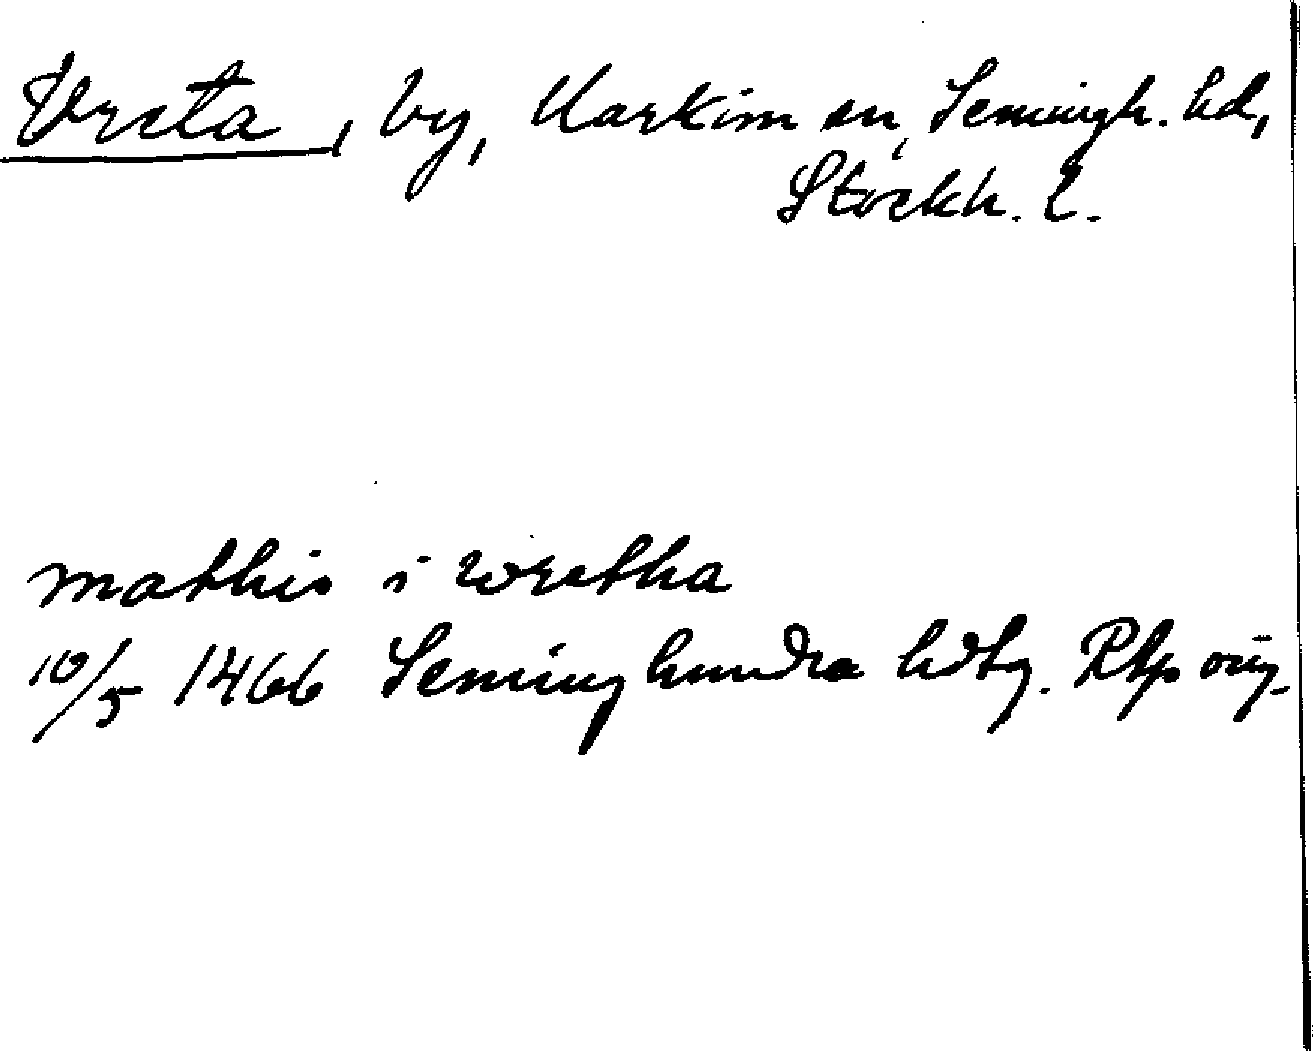 Vreta, by, Markim sn, Semingh. hd,
Stockh. l.
mathis i wretha
10/5 1466 Seminghundra hdtg. RAp orig.